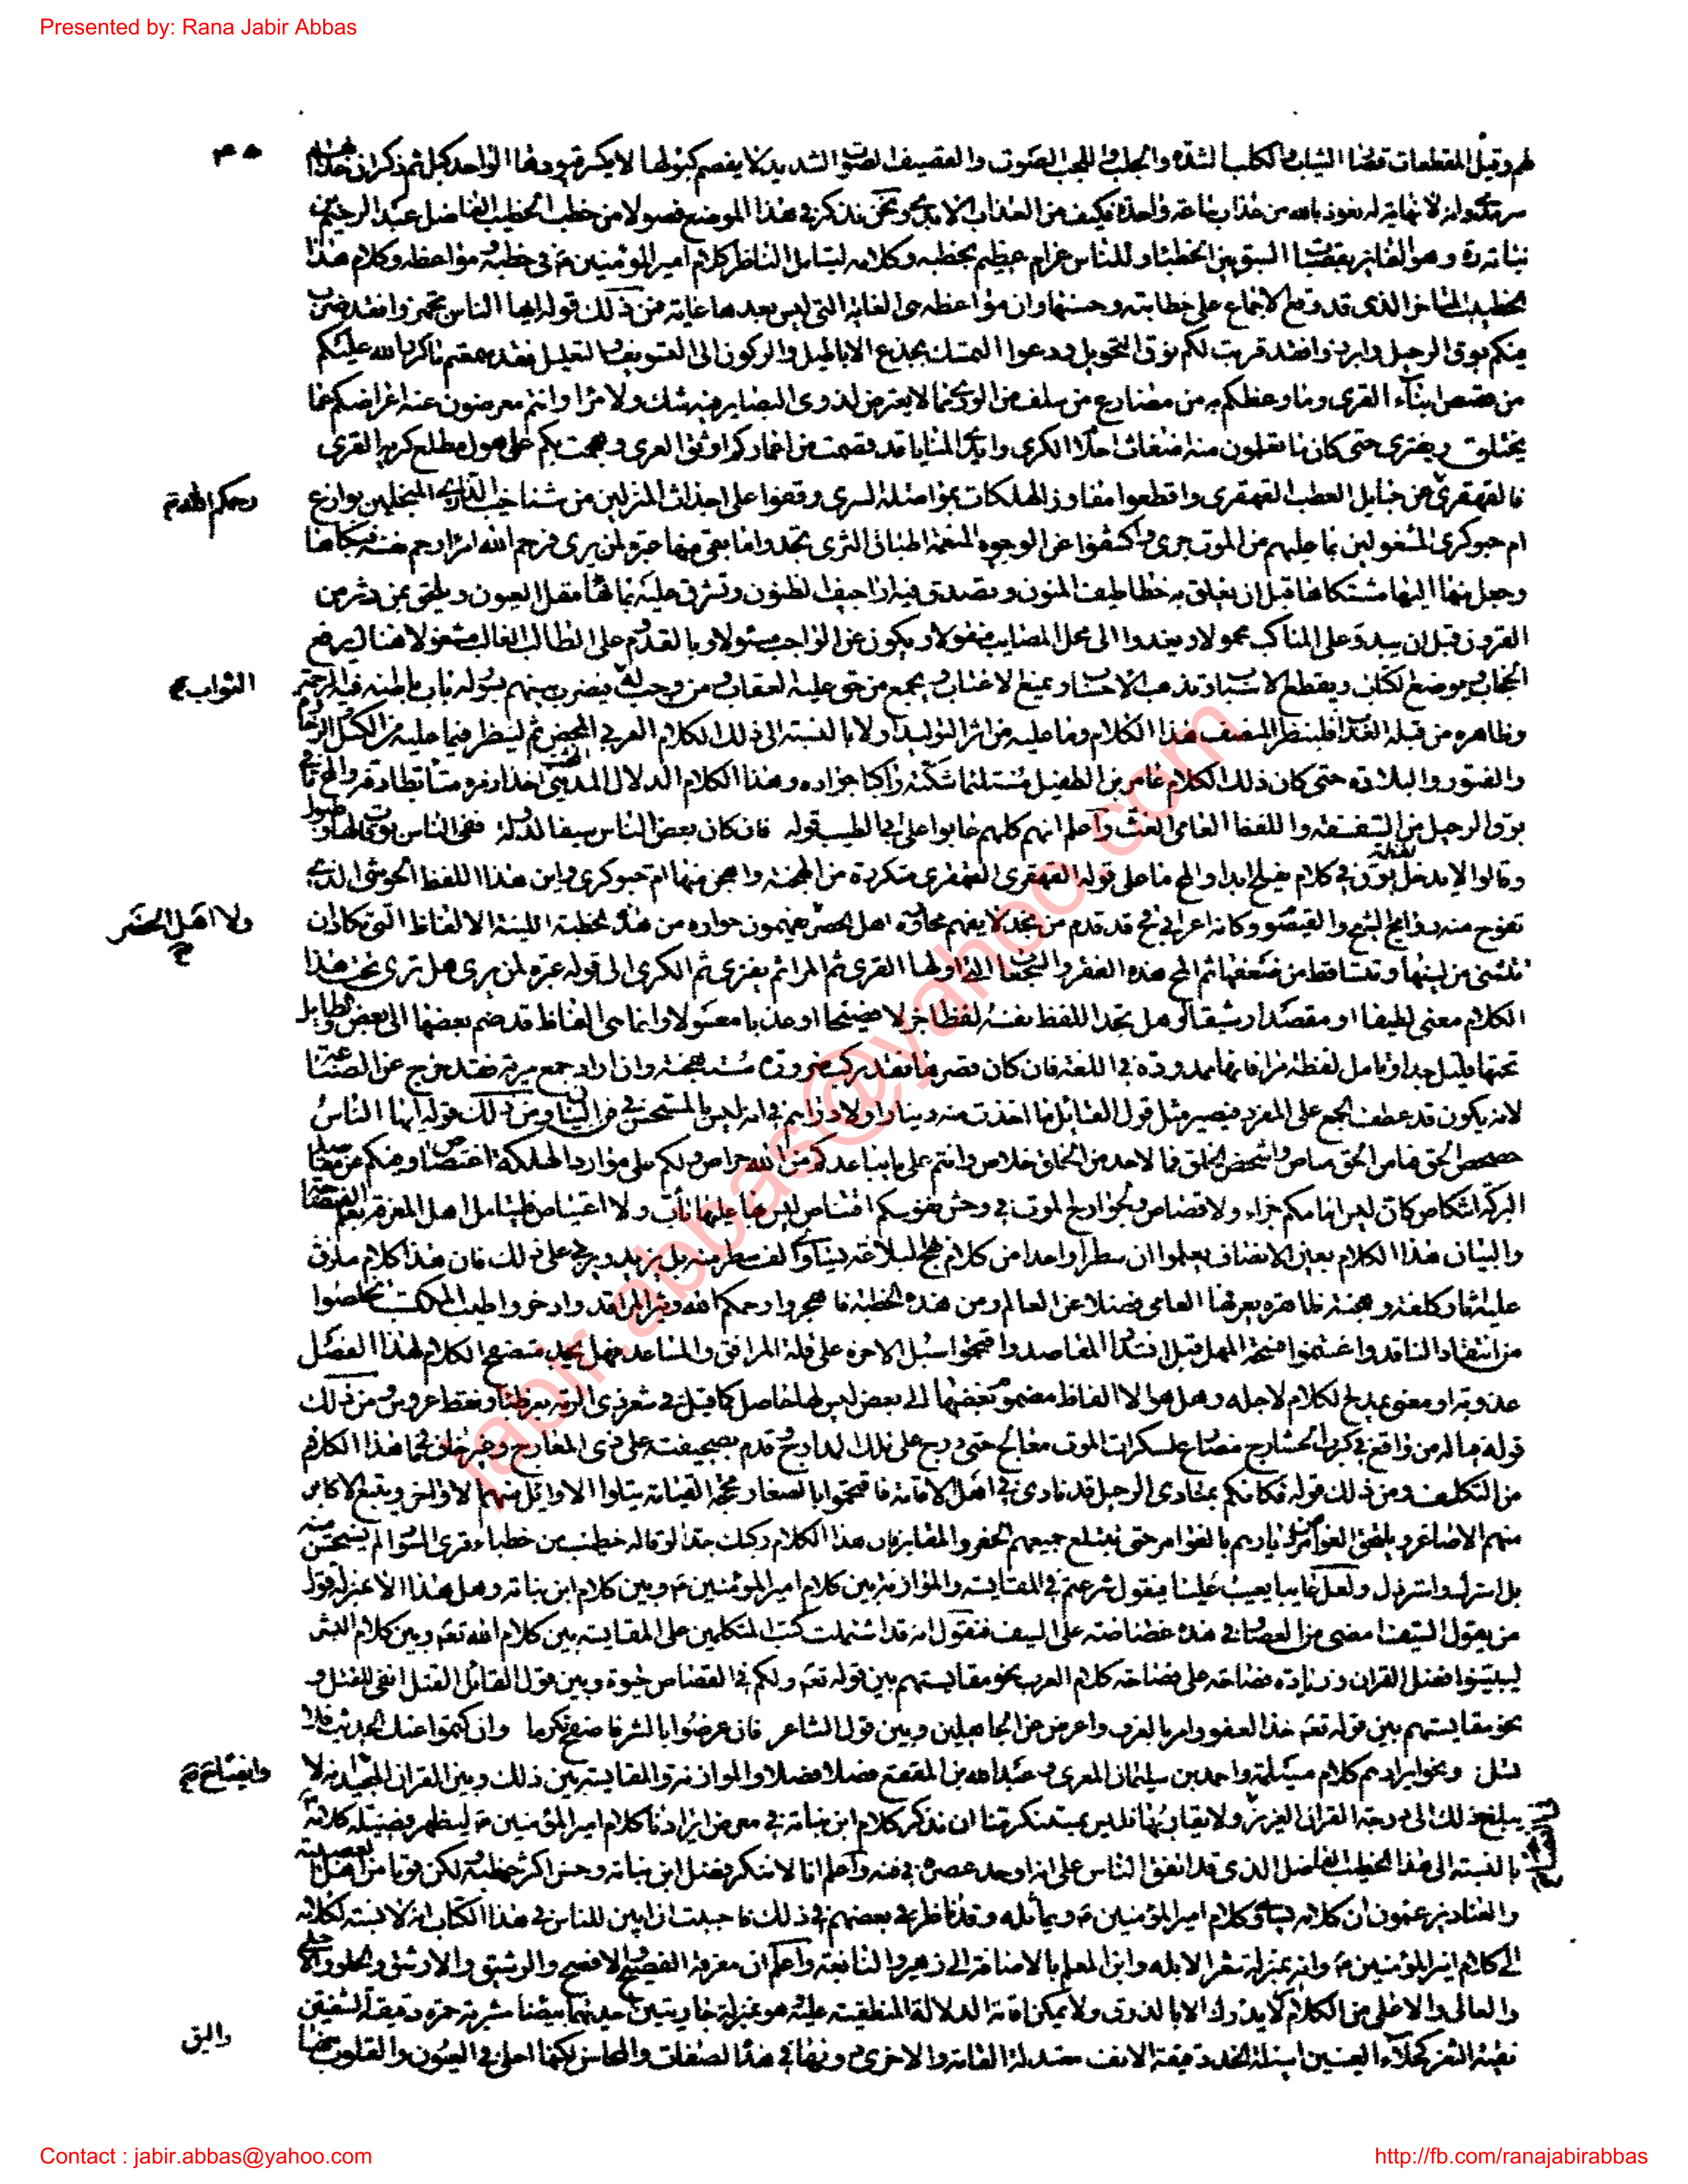 Presented by: Rana Jabir Abbas
لهم وقيل المقطعات قصار الثياب والكلب الشدة والجلب واللجب الصوت والقصيف الصوت الشديد لا يفصم كبولها لا يكسر قيودها الواحد كبل ثم ذكر ان عذابهم
سرمد وانه لا نهاية له نعوذ بالله من عذاب ساعة واحدة فكيف من العذاب الابدي ونحن نذكر في هذا الموضع فصولا من خطب الخطيب الفاضل عبد الرحيم بن
نباتة ره وهو الفائز بقصبات السبق من الخطباء وللناس غرام عظيم بخطبه وكلامه ليتامل الناظر كلام امير المؤمنين ع في خطبه ومواعظه وكلام هذا
الخطيب المتاخر الذي قد وقع الاجماع على خطابته وحسنها وان مواعظه هي الغاية التي ليس بعدها غاية فمن ذلك قوله ايها الناس تجهزوا فقد ضرب
فيكم بوق الرحيل وابرزوا فقد قربت لكم نوق التحويل ودعوا التمسك بخدع الاباطيل والركون الى التسويف والتعليل فقد سمعتم ما كرر الله عليكم
من قصص ابناء القرى وما وعظكم به من مصارع من سلف من الورى مما لا يعترض لذوي البصاير فيه شك ولا مرا وانتم معرضون عنه اعراضكم عما
يختلق ويفترى حتى كان ما تعلمون منه اضغاث احلام الكرى وايدي المنايا قد فصمت من اعماركم اوثق العرى وهجمت بكم على هول مطلع كريه القرى
فالقهقرى رحمكم الله عن حبايل العطب القهقرى واقطعوا مفاوز الهلكات بمواصلة السرى وقفوا على اجداث المنزلين من شناخيب الذرى المتجلين بوازع
ام حبوكرى المشغولين بما عليهم من الموت جرى واكشفوا عن الوجوه المنعمة اطباق الثرى تجدوا ما بقي منها عبرة لمن يرى فرحم الله امرأ رحم نفسه فبكاها
وجعل منها اليها مشتكاها قبل ان يعلق به خطاطيف المنون وتصدق فيه اراجيف الظنون وتشرق عليه بمائها مقل العيون ويلحق بمن دثر من
القرون قبل ان يبدو على المناكب محمولا ويغدوا الى محل المصايب منقولا ويكون عن الواجب مسئولا وبالقدوم على الطالب الغالب مشغولا هناك يرفع
الحجاب ويوضع الكتاب ويقطع الاسباب وتذهب الاحساب ويمنع الاعتاب ويجمع من حق عليه العقاب ومن وجب له الثواب فيضرب بينهم بسور له باب باطنه فيه الرحمة
وظاهره من قبله العذاب فلينظر المنصف هذا الكلام وما عليه من اثر التوليد اولا بالنسبة الى ذلك الكلام العربي المحض ثم لينظر فيما عليه من الكسل والرخاوة
والفتور والبلادة حتى كان ذلك الكلام لعامر بن الطفيل مستلئما شكته راكبا جواده وهذا الكلام للدلال المديني المخنث
بوق الرحيل من السفسفة واللفظ العامي الغث واعلم انهم كلهم عابوا على ابي الطيب قوله فان كان بعض الناس سيفا لدولة ففي الناس بوقات لها وطبول
وقالوا لا تدخل لفظة بوق في كلام يفلح ابدا والمح ما على قوله القهقرى القهقرى متكررة من الهجنة واهجن منها ام حبوكرى واين هذا اللفظ الحوشي الذي
تفوح منه روايح الشيح والقيصوم وكانه اعرابي قح قد قدم من نجد لا يفهم محاورة اهل الحضر ولا اهل الحضر يفهمون حواره من هذه الخطبة اللينة الالفاظ التي تكاد ان
تتثنى من لينها وتتساقط من ضعفها ثم المح هذه الفقر والسجعات التي اولها القرى ثم المرا ثم يفترى ثم الكرى الى قوله عبرة لمن يرى هل ترى تحت هذا
الكلام معنى لطيفا او مقصدا رشيقا او هل تجد اللفظ نفسه لفظا جزلا فصيحا او عذبا معسولا وانما هي الفاظ قد ضم بعضها الى بعض والطايل
تحتها قليل جدا وتامل لفظة مرا فانها ممدودة في اللغة فان كان قصرها فقد ركب ضرورة مستهجنة وان اراد جمع مرية فقد خرج عن الصناعة
لانه يكون قد عطف الجمع على المفرد فيصير مثل قول القائل ما اخذت منه دينارا ولا دراهم في انه ليس بالمستحسن في فن البيان ومن ذلك قوله ايها الناس
حصحص الحق فما من الحق مناص واشخص الخلق فما لاحد من الخلق خلاص وانتم على ما يباعدكم من الله حراص ولكم على موارد الهلكة اغتصاص وفيكم عن مقاصد
البركة انتكاص كان ليس امامكم جزاء ولا قصاص ولجوارح الموت في وحش نفوسكم اقتناص ليس بها عليها تأب ولا اعتياص فليتامل اهل المعرفة بعلم الفصاحة
والبيان هذا الكلام بعين الانصاف يعلموا ان سطرا واحدا من كلام نهج البلاغة يساوي الف سطر منه بل يزيد ويربي على ذلك فان هذا كلام ملزق
عليه اثار كلفة وهجنة ظاهرة يعرفها العامي فضلا عن العالم ومن هذه الخطبة فاهجروا رحمكم الله وثير المراقد وادخروا طيب المكتسب تخلصوا
من انتقاد الناقد واغتنموا فسحة المهل قبل انسداد المقاصد واقتحموا سبل الاخرة على قلة المرافق والمساعد فهل يجد متصفح الكلام لهذا الفصل
عذوبة او معنى يمدح الكلام لاجله وهل هو الا الفاظ مضموم بعضها الى بعض ليس لها حاصل كما قيل في شعر ذي الرمة بعر ظباء ونقط عروس ومن ذلك
قوله فياله من واقع في كرب الحشارج مصارع لسكرات الموت معالج حتى درج على تلك المدارج وقدم بصحيفته على ذي المعارج وغير خاف ما في هذا الكلام
من التكلف ومن ذلك قوله فكانكم بمنادي الرحيل قد نادى في اهل الاقامة فاقتحموا بالصغار محجة القيامة يتلوا الاوايل منهم الاواخر ويتبع الاكابر
منهم الاصاغر ويلتحق الغوامر من ديارهم بالغوامر حتى تبتلع جميعهم الحفر والمقابر فان هذا الكلام ركيك جدا لو قاله خطيب من خطباء قرى السواد لم يستحسن منه
بل استرك واسترذل ولعل عايبا يعيب علينا فيقول شرعتم في المقايسة والموازنة بين كلام امير المؤمنين ع وبين كلام ابن نباتة وهل هذا الا بمنزلة قول
من يقول السيف امضى من العصا وفي هذه غضاضة على السيف فنقول انه قد اشتملت كتب المتكلمين على المقايسة بين كلام الله تعم وبين كلام البشر
ليبينوا فضل القران وزيادة فصاحته على فصاحة كلام العرب نحو مقايستهم بين قوله تعم ولكم في القصاص حيوة وبين قول القائل القتل انفى للقتل و
نحو مقايستهم بين قوله تعم خذ العفو وامر بالعرف واعرض عن الجاهلين وبين قول الشاعر فان عرضوا بالشر فاصفح تكرما وان كتموا عنك الحديث فلا
تسل ونحو ايرادهم كلام مسيلمة واحمد بن سليمان المعري وعبد الله بن المقفع فصلا فصلا والموازنة والمقايسة بين ذلك وبين القران المجيد وايضاح انه لا
يبلغ ذلك الى درجة القران العزيز ولا يقاربها فليس بمستنكر منا ان نذكر كلام ابن نباتة في معرض ايرادنا كلام امير المؤمنين ع ليظهر فضيلة كلامه
بالنسبة الى هذا الخطيب الفاضل الذي قد اتفق الناس على انه اوحد عصره في فنه واعلم انا لا ننكر فضل ابن نباتة وحسن اكثر خطبه ولكن قوما من اهل العصبية
والعناد يزعمون ان كلامه يساوي كلام امير المؤمنين ع ويماثله وقد ناظر بعضهم في ذلك فاحببت ان ابين للناس في هذا الكتاب انه لا نسبة لكلامه
الى كلام امير المؤمنين ع وانه بمنزلة شعر الابله وابن المعلم بالاضافة الى زهير والنابغة واعلم ان معرفة الفصيح والافصح والرشيق والارشق والحلو والاحلى
والعالي والاعلى من الكلام لا يدرك الا بالذوق ولا يمكن اقامة الدلالة المنطقية عليه هو بمنزلة جاريتين احديهما بيضاء مشربة حمرة دقيقة الشفتين
نقية الثغر كحلاء العينين اسيلة الخد دقيقة الانف معتدلة القامة والاخرى دونها في هذه الصفات والمحاسن لكنها احلى في العيون والقلوب منها
واليق
jabir.abbas@yahoo.com
Contact : jabir.abbas@yahoo.com
http://fb.com/ranajabirabbas